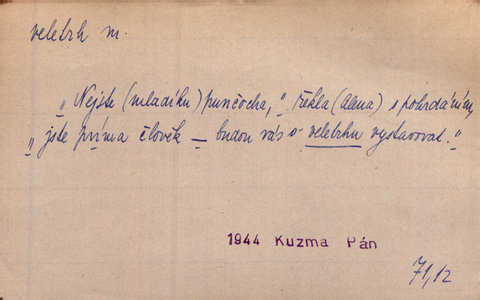 veletrh m.
„Nejste (mladíku) punčocha,“ řekla (Alena) s pohrdáním,
„jste príma člověk – budou vás o veletrhu vystavovat.“
1944 Kuzma Pán
71,12